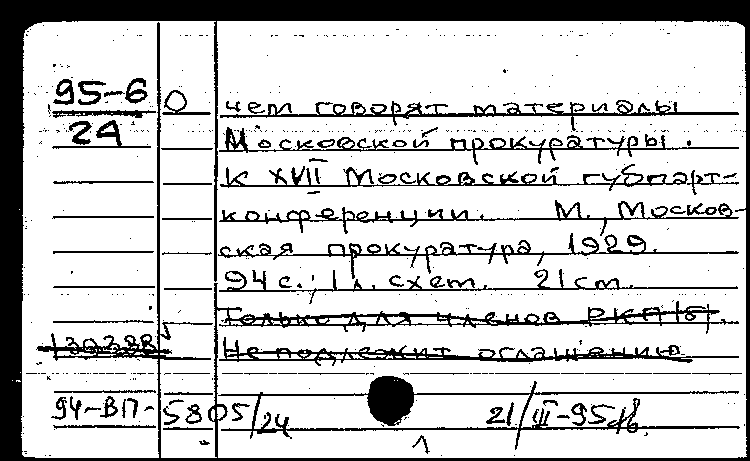 95-6
24
О чем говорят материалы
Московской прокуратуры.
К XVII Московской губпарт-
конференции. М., Москов-
ская прокуратура, 1929.
94 с.; 1 л. схем. 21 см.
Только для членов РКП(б).
Не подлежит оглашению
94-ВП-5805/24
21/III-95